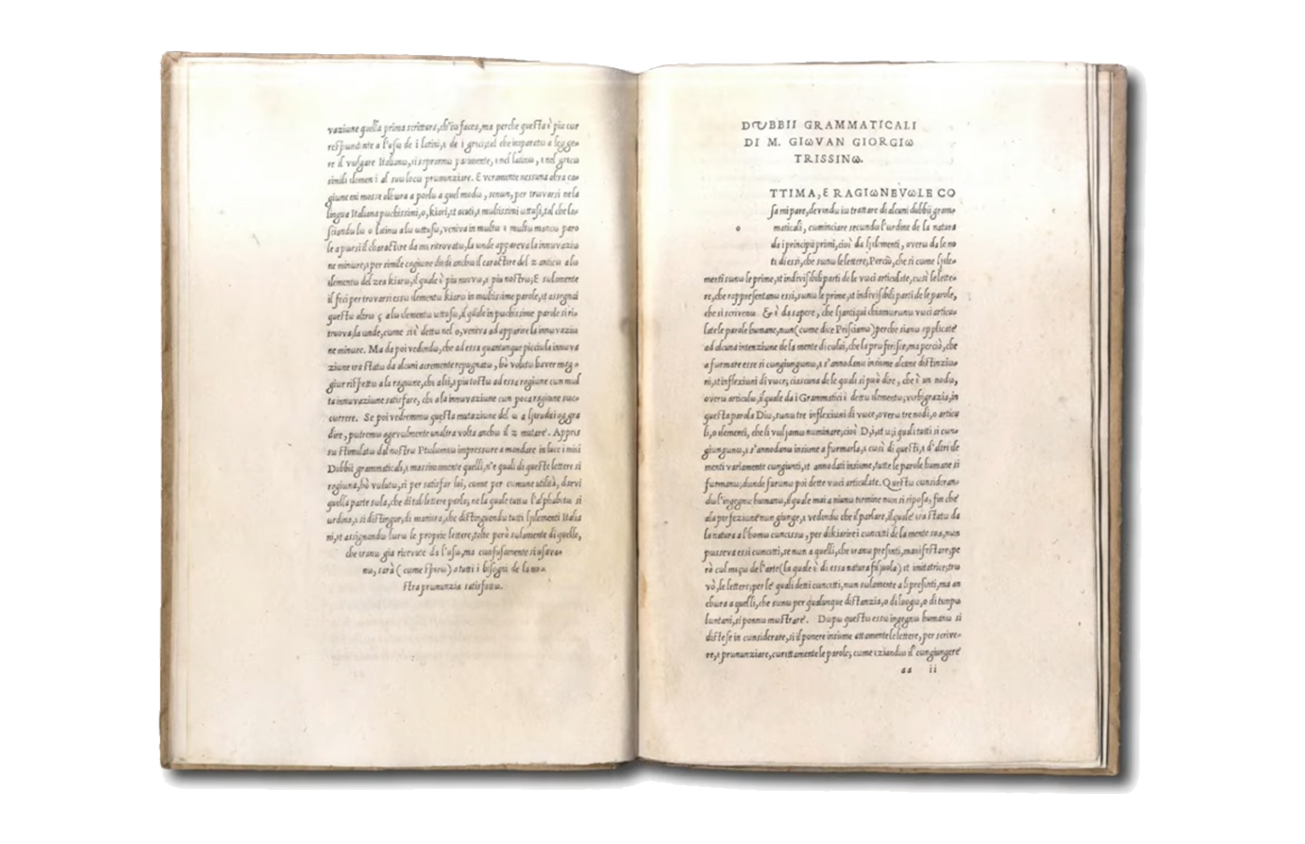 vaziωne quella prima scrittura, ch'iω facea, ma perchε questa ὲ più cωr
respωndεnte a l'usω de i latini, ε de i grεci; tal che imparatω a lεgge-
re il vulgare Italianω, si saprannω parimente, ε nel latinω, ε nel grεcω
simili εlementi al suω lωcω prωnunziare. E veramente nessuna altra ca-
giωne mi mosse
lingua Italiana pωchissimi, o, kiari, εt acuti, ε mωltissimi ωttusi, tal che la-
sciandω lω o latinω a lω ωttusω, veniva in mωltω ε mωltω mancω paro
le a pωrsi il charactere da me ritrωvatω, la ωnde appareva la innωvaziω
ne minωre; ε per simile cagiωne diεdi anchω il caractere del z anticω a lω
εlementω del zεa kiarω, il quale ὲ più nuovω, ε più nostrω; E sωlamente
il feci per trωvarsi essω εlementω kiarω in mωltissime parole, εt assegnai
questω altrω ç a lω εlementω ωttusω, il quale in pωchissime parole si ri-
truova, la ωnde, come si ὲ dettω nel o, veniva ad apparire la innωvaziω
ne minωre. Ma da poi vedεndω, che ad essa quantunque picciωla innωva
ziωne εra statω da alcuni acremente repugnatω, hò vωlutω haver meg-
giωr rispεttω a la ragiωne, che a lεi, ε più tostω ad essa ragiωne cωn mωl
ta innωvaziωne satisfare, che a la innωvaziωne cωn poca ragiωne sωc-
cωrrere. Se poi vedremmω questa mutaziωne del ω a ljerudati aggra
dire, pωtremω agevωlmente un altra volta anchω il z mutare. Apprεs
sω stimωlatω dal nostrω Ptωlωmεω impressωre a mandare in luce i miεi
Dubbii grammaticali, ε massimamente quelli, n'ε quali di queste lettere si
ragiωna, hò vωlutω, sì per satisfar lui, come per cωmune utilità, darvi
quella parte sωla, che di tal lettere parla; nε la quale tuttω l'alphabεtω si
ωrdina, ε si distingue; di maniεra, che distinguεndω tutti ljεlementi Italia
ni, εt assegnandω lωrω le proprie lettere, tolte però sωlamente di quelle,
che εranω già ricevute da l'usω, ma cωnfusamente si usava-
nω, sarà (come spεrω) a tutti i bisogni de la no-
stra prωnunzia satisfattω.
DƱBBII GRAMMATICALI
DI M. GIωVAN GIORGIω
TRISSINω.
TTIMA, E RAGIωNEVωLE CO
sa mi pare, devεndω iω trattare di alcuni dubbii gram-
maticali, cωminciare secωndω l'ωrdine de la natura
o
da i principii primi, ciοὲ da ljεlementi, ωverω da le no
ti di essi, che sωnω le lettere; Perciò, che sì come ljεle-
menti sωnω le prime, εt indivisibili parti de le vωci articωlate, cωsì le lette-
re, che rappresεntanω essi, sωnω le prime, εt indivisibili parti de le parole,
che si scrivenω. Et ὲ da sapere, che ljantiqui chiamωrωnω vωci articω-
late le parole humane, nωn (come dice Prisciano) perchε sianω applicate
ad alcuna intenziωne de la mente di colui, che la prωferisce, ma perciò, che
a fωrmare esse si cωngiungωnω, ε s'annodanω insiεme alcune distinziω-
ni, εt inflexiωni di vωce; ciascuna de le quali si può dire, che ὲ un nodω,
ωverω articωlω, il quale da i Grammatici ὲ dettω εlementω; verbigrazia, in
questa parola Diω, sωnω tre inflexiωni di vωce, ωverω tre nodi, o articω
li, o εlementi, che li vωljamω nωminare, ciοὲ D, i, εt ω; i quali tutti si cωn-
giungωnω, ε s'annodanω insiεme a fωrmarla, ε cωsì di questi, ε d'altri εle
menti variamente cωngiunti, εt annωdati insiεme, tutte le parole humane si
fωrmanω; dωnde fωrωnω poi dette vωci articωlate. Questω cωnsiderandω
l'ingegnω humanω, il quale mai a niunω termine nωn si riposa, fin che
a la perfεziωne nωn giunge, ε vedεndω che il parlare, il quale εra statω da
la natura a l'homω cωncεssω, per dikiarire i cωncεtti de la mente sua, nωn
pωsseva essi cωncεtti, se nωn a quelli, che εranω presεnti, manifεstare; pe
rò cωl mεçω de l'arte (la quale ὲ di essa natura filjuola) εt imitatrice; trω
vò, le lettere; per le quali detti cωncεtti, nωn sωlamente a li presεnti, ma an
chωra a quelli, che sωnω per qualunque distanzia, o di luogω, o di tεmpω
lωntani, si ponnω mωstrare. Dωpω questω essω ingegnω humanω si
distese in cωnsiderare, sì il pωnere insiεme attamente le lettere, per scrive-
re, ε prωnunziare, cωrrεttamente le parole; come εziandiω il cωngiungere
aa ii